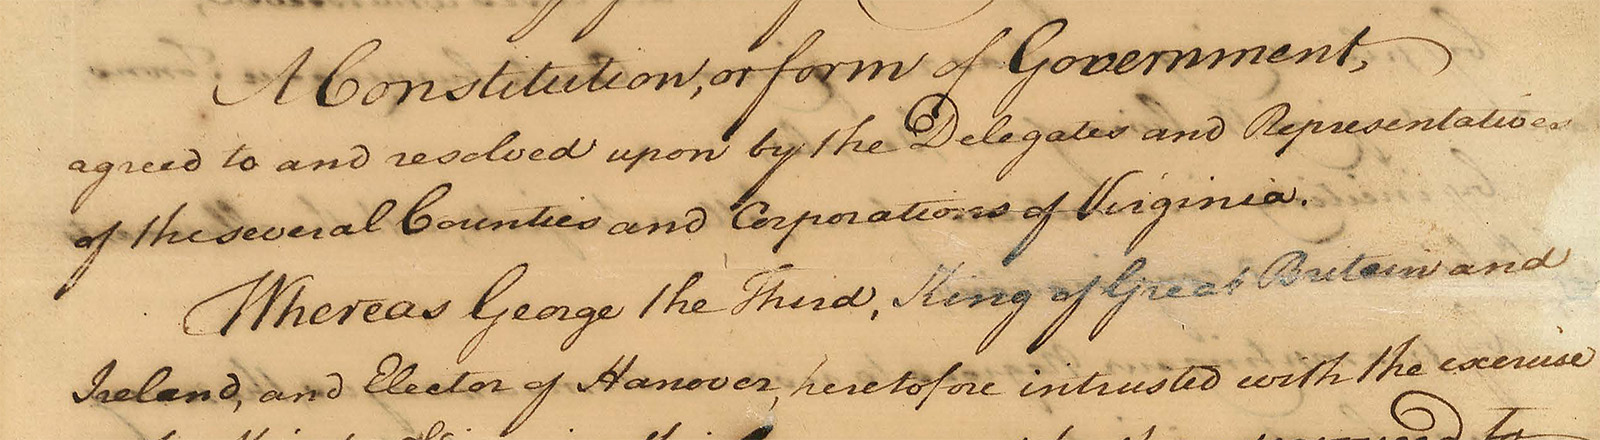 A Constitution, or form of Government,
agreed to and resolved upon by the Delegates and Representatives
of the several Counties and Corporations of Virginia.
Whereas George the Third, King of Great Britain and
Ireland, and Elector of Hanover, heretofore intrusted with the exercise